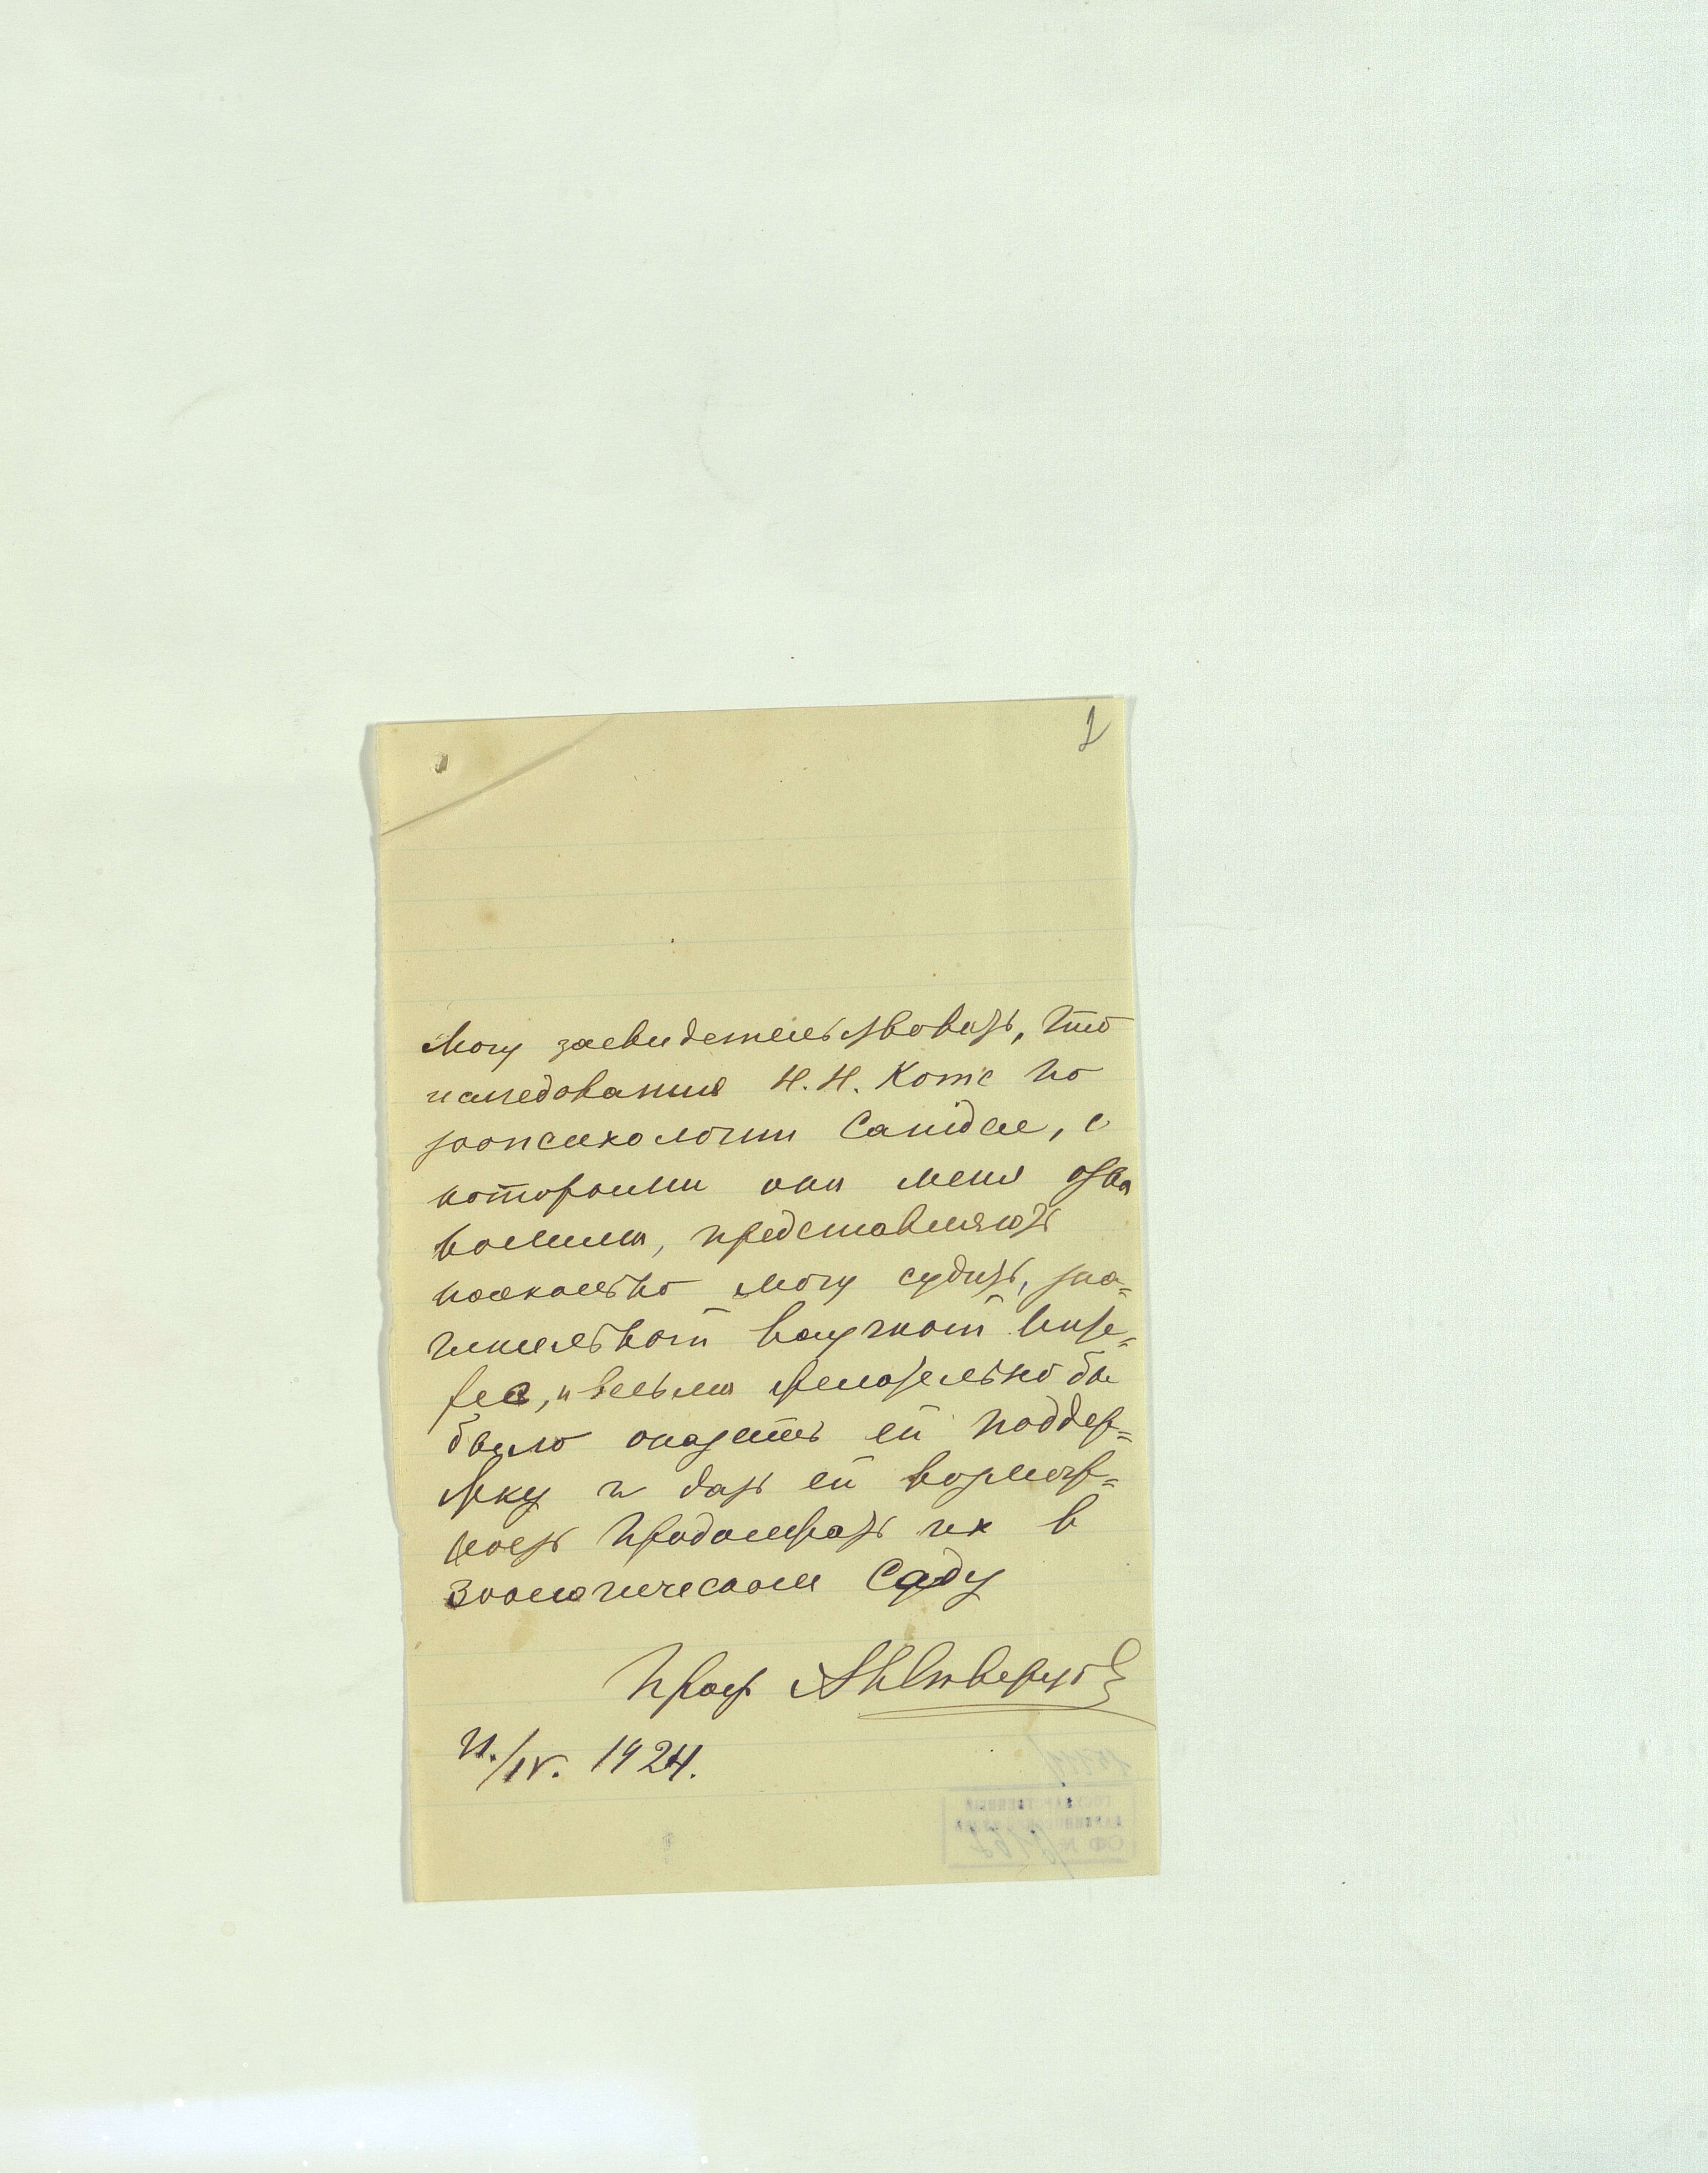 1
Могу засвидетельствовать, что
исследования Н.Н. Котс по
зоопсихологии Canidae, с
которыми она меня озна
комила, представляют
поскольку могу судить, зна=
чительный научный инте=
рес, и весьма желательно бы
было оказать ей поддер=
жку и дать ей возмож=
ность продолжать их в
Зоологическом Саду
Проф. А Н Северцов
21./IV. 1924.